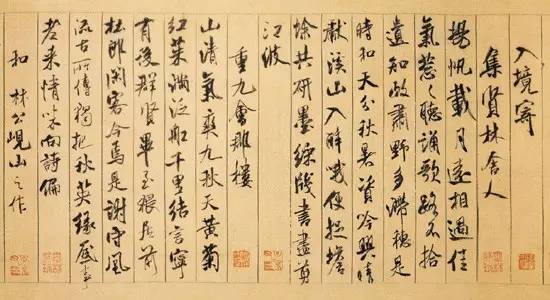 入境寄
集賢林舍人
揚帆載月遠相過佳
氣蔥〻聽誦歌路不拾
遺知政肅野多滯穗是
時和天分秋暑資吟興晴
獻溪山入醉哦便捉蟾
蜍共研墨綵牋書盡剪
江波
重九會郡樓
山清氣爽九秋天黃菊
紅茱滿泛船千里結言寧
有後群賢畢至猥居前
杜郎閑客今焉是謝守風
流古所傳獨把秋英緣底事
老來情味向詩偏
和林公峴山之作